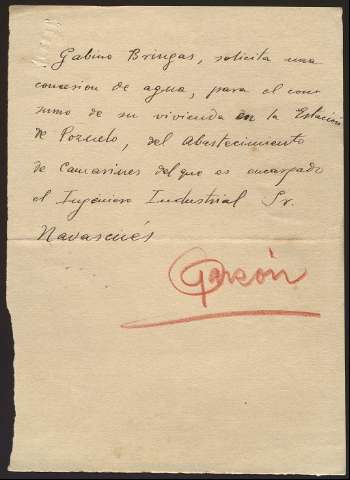 Gabino Bringas, solicita una
concesion de agua, para el con
sumo de su vivienda en la Estación
de Pozuelo, del Abastecimiento
de Camarines del que es encargado
el Ingeniero Industrial Sr.
Navascués
Garzón